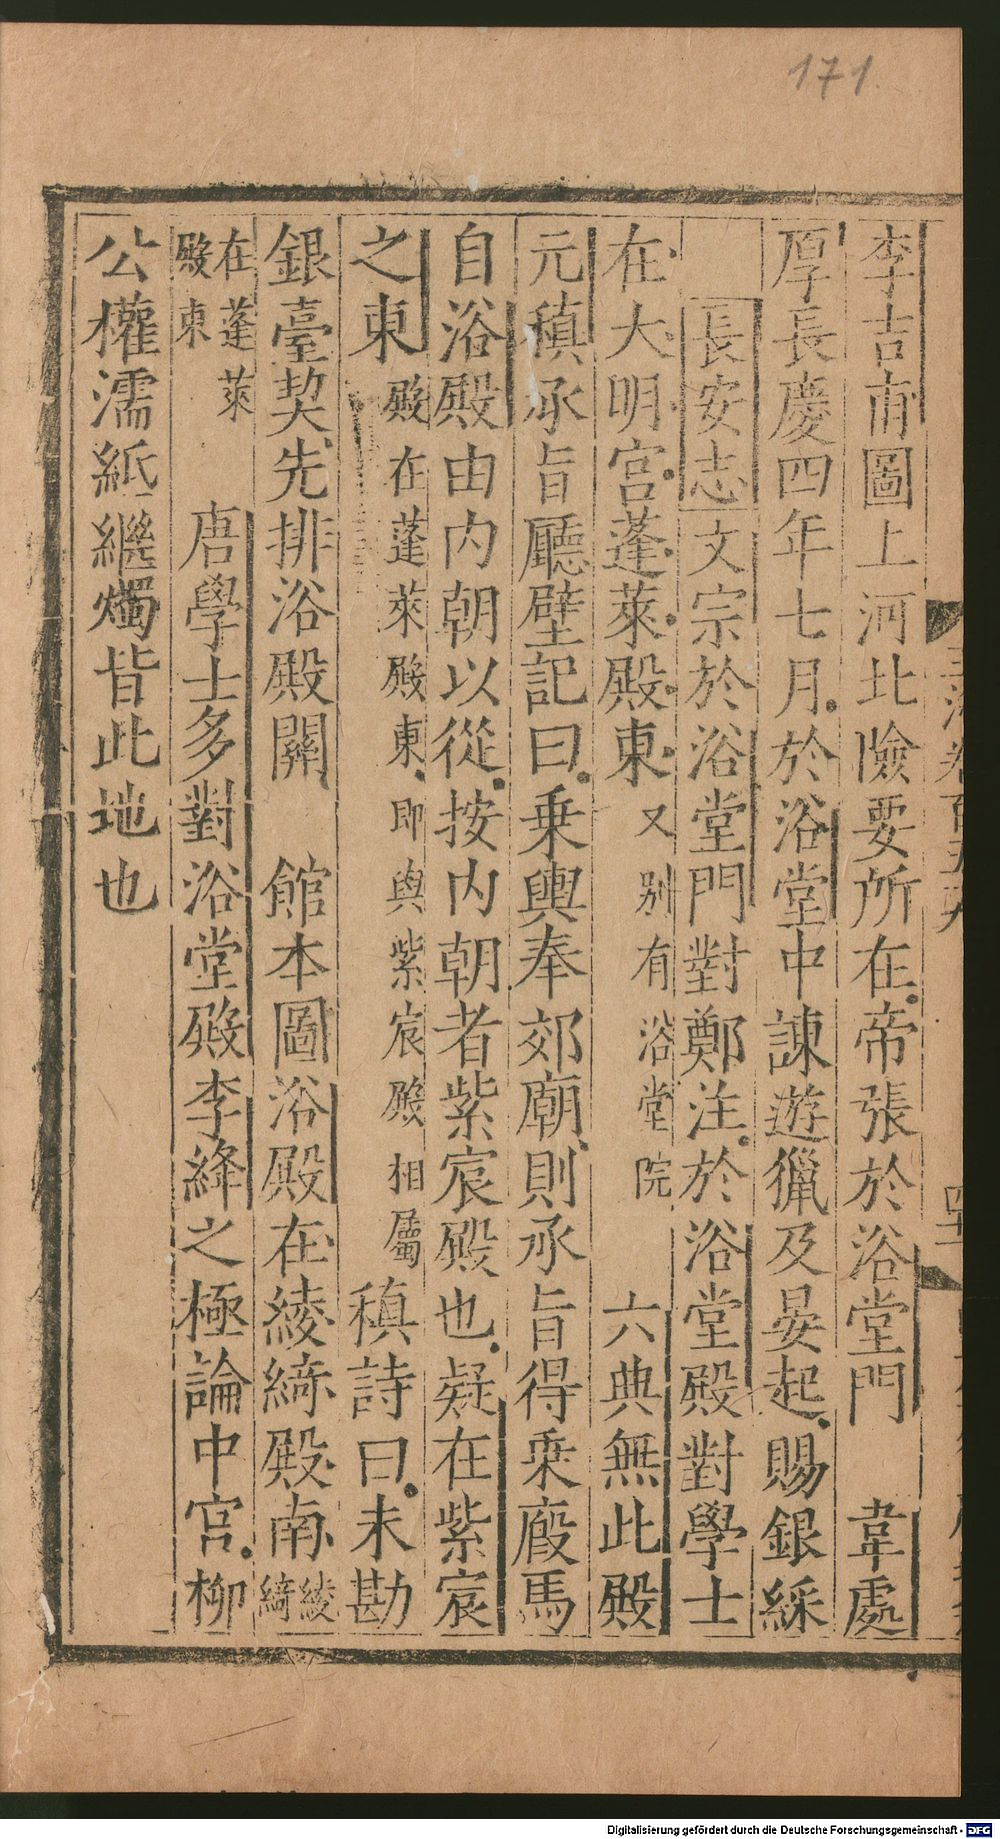 171.
李吉甫圖上河北險要所在帝張於浴堂門　韋處
厚長慶四年七月於浴堂中諫遊獵及晏起賜銀綵
長安志文宗於浴堂門對鄭注於浴堂殿對學士
在大明宮蓬萊殿東又别有浴堂院　六典無此殿
元稹承旨廳壁記曰乗輿奉郊廟則承旨得乗廄馬
自浴殿由内朝以從按内朝者紫宸殿也疑在紫宸
之東殿在蓬萊殿東即與紫宸殿相屬稹詩曰未勘
銀臺契先排浴殿關　館本圖浴殿在綾綺殿南綾綺
在蓬萊殿東　唐學士多對浴堂殿李絳之極論中官柳
公權濡紙繼燭皆此地也
Digitalisierung gefördert durch die Deutsche Forschungsgemeinschaft - DFG